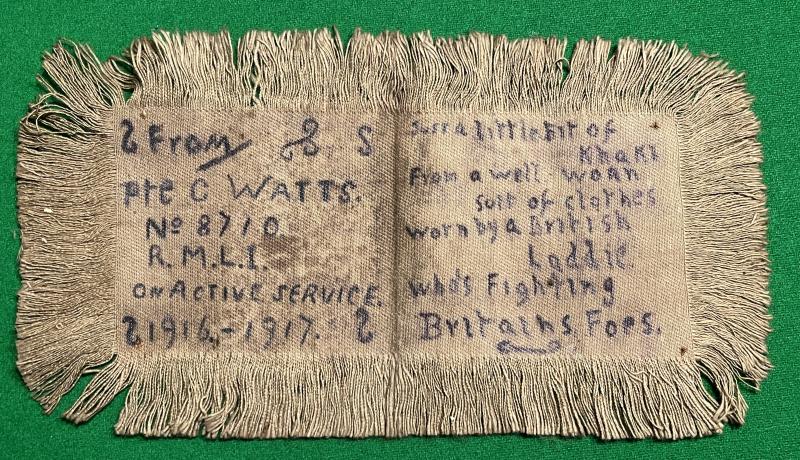 From
Pte C WATTS.
No 8710
R.M.L.I.
ON ACTIVE SERVICE.
1916,-1917.
Just a little bit of
Khaki
From a well woan
suit of clothes
worn by a British
Laddie
who's Fighting
Britains, Foes.